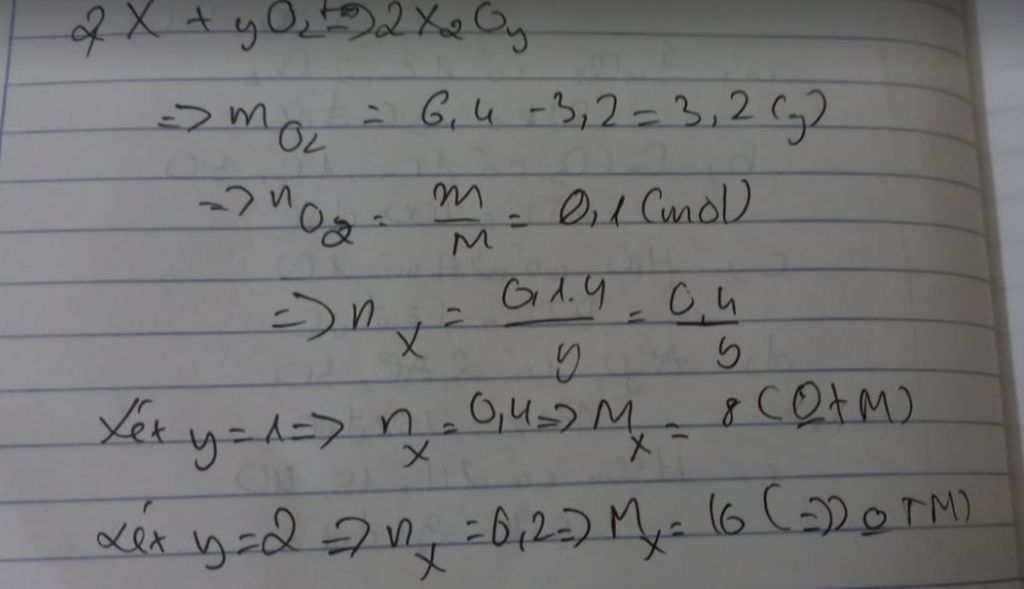 2X + yO₂ => 2X₂Oy
=> mO₂ = 6,4 - 3,2 = 3,2 (g)
=> nO₂ = m/M = 0,1 (mol)
=> nX = 0,1.4/y = 0,4/y
Xét y = 1 => nX = 0,4 => MX = 8 (0 TM)
Xét y = 2 => nX = 0,2 => MX = 16 (=> 0 TM)